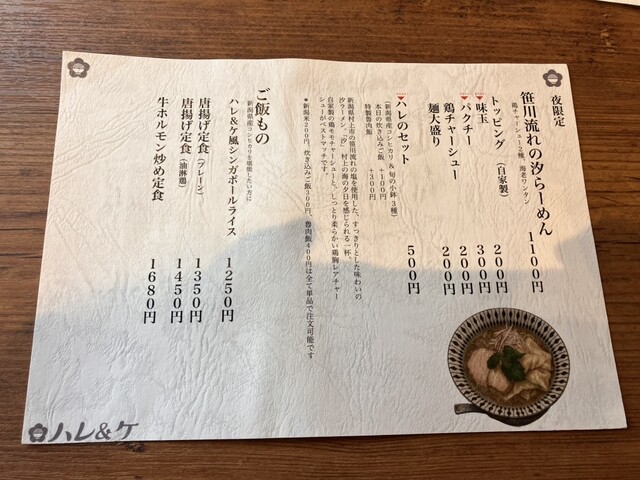 夜限定
笹川流れの汐らーめん 1100円
鶏チャーシュー2種、海老ワンタン
トッピング (自家製)
味玉 200円
パクチー 300円
鶏チャーシュー 200円
麺大盛り 200円
ハレのセット 500円
(新潟県産コシヒカリ & 旬の小鉢3種)
本日の炊き込みご飯 +100円
特製魯肉飯 +300円
新潟県村上市の笹川流れの塩を使用した、すっきりとした味わいの
汐ラーメン。「汐」村上の海の夕日を感じられる一杯。
自家製の鶏モモチャーシューと、しっとり柔らかい鶏胸レアチャー
シューがベストマッチです。
*新潟米200円、炊き込みご飯300円、魯肉飯400円は全て単品で注文可能です
ご飯もの
(新潟県産コシヒカリを堪能したい方に)
ハレ&ケ風シンガポールライス 1250円
唐揚げ定食 (プレーン) 1350円
唐揚げ定食 (油淋鶏) 1450円
牛ホルモン炒め定食 1680円
ハレ&ケ